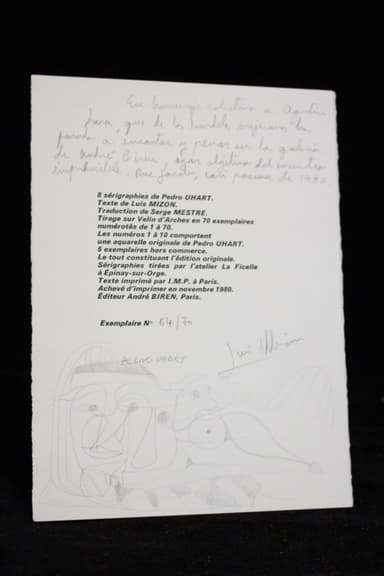 En homenaje colectivo a Agustín
Jara, que de
pasado a encantos y penas en la galería
de André Biren, azar objetivo del encuentro
improbable. Rue Jacob, 1980
8 sérigraphies de Pedro UHART.
Texte de Luis MIZON.
Traduction de Serge MESTRE.
Tirage sur Velin d'Arches en 70 exemplaires
numérotés de 1 à 70.
Les numéros 1 à 10 comportent
une aquarelle originale de Pedro UHART.
5 exemplaires hors commerce.
Le tout constituant l'édition originale.
Sérigraphies tirées par l'atelier La Ficelle
à Épinay-sur-Orge.
Texte imprimé par I.M.P. à Paris.
Achevé d'imprimer en novembre 1980.
Éditeur André BIREN, Paris.
Exemplaire N° 64/70
PEDRO UHART
Luis Mizon